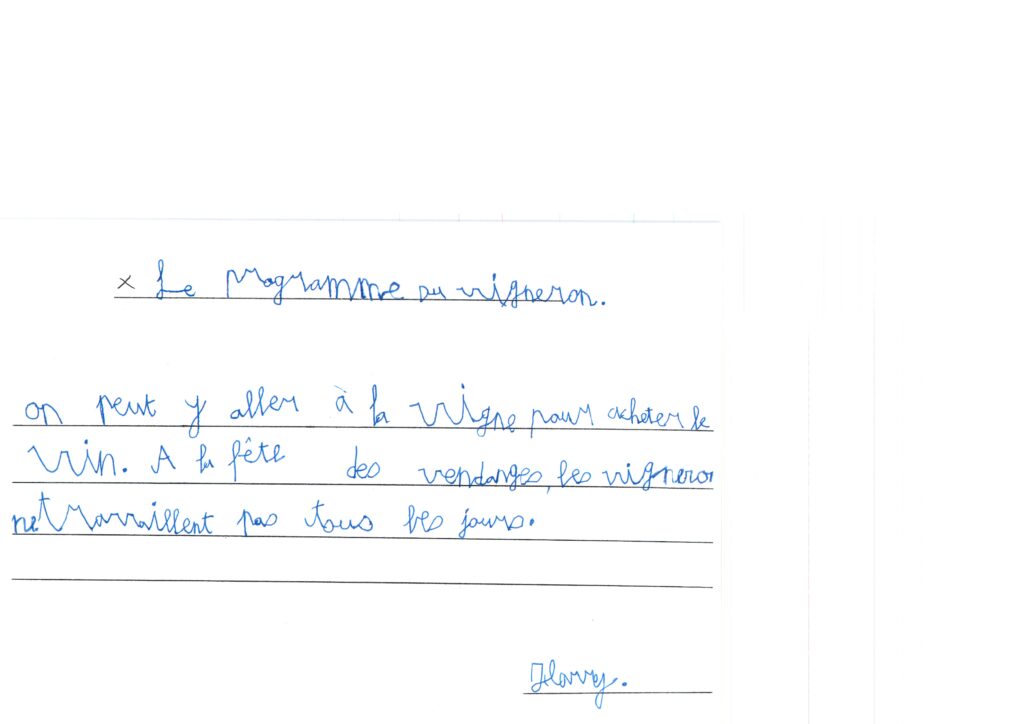 × Le programme du vigneron.
on peut y aller à la vigne pour acheter le
vin. A la fête des vendanges, les vigneron
ne travaillent pas tous les jours.